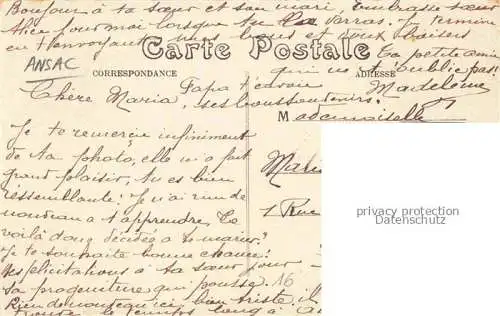 Bonjour à ta sœur et son mari, embrasse sœur
Alice pour moi lorsque tu la verras. Je termine
en t'envoyant mes bons et doux baisers
Carte Postale
Ta petite amie
qui ne t'oublie pas!
ANSAC
CORRESPONDANCE
ADRESSE
Madeleine
Papa t'envoie
ses bons souvenirs.
Chère Maria,
M ademoiselle
Je te remercie infiniment
de ta photo, elle m'a fait
grand plaisir, tu es bien
ressemblante! Je n'ai rien de
nouveau à t'apprendre. Te
voilà donc décidée à te marier?
Je te souhaite bonne chance!
Mes félicitations à ta sœur pour
sa progéniture qui pousse.
Rien de nouveau ici, bien triste, il
le temps long à
Mari
1 Rue
privacy protection
Datenschutz
A6